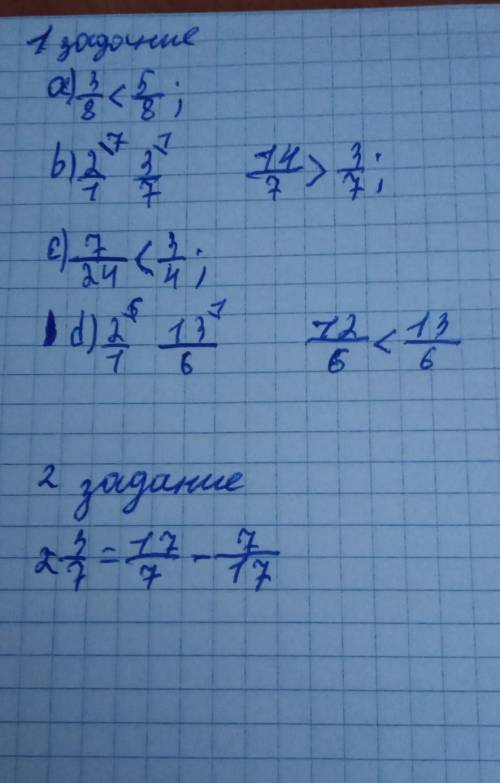 1 задание
a) 3/8 < 5/8;
b) 2/1 \7 3/7 \1 14/7 > 3/7;
c) 7/24 < 3/4;
d) 2/1 \6 13/6 \1 12/6 < 13/6
2 задание
2 3/7 = 17/7 - 7/17